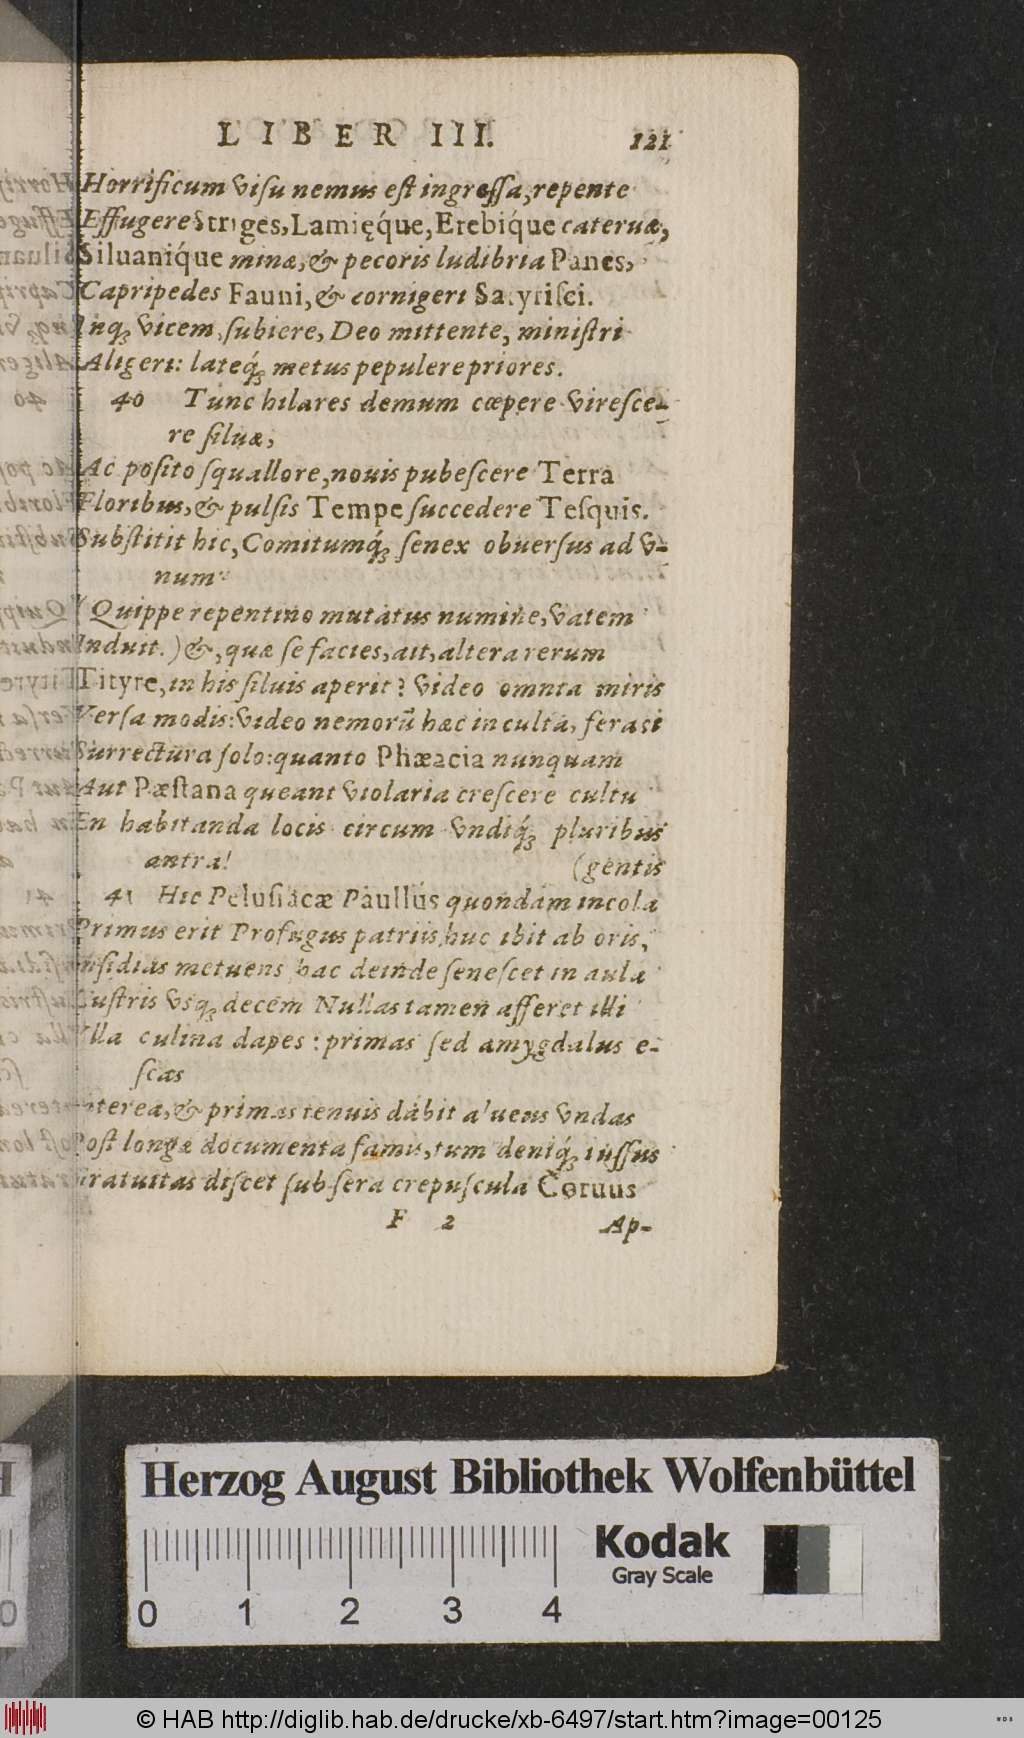 LIBER III. 121
Horrificum visu nemus est ingressa, repente
Effugere Striges, Lamięq́ue, Erebiq́ue cateruæ,
Siluaniq́ue minæ, & pecoris ludibria Panes,
Capripedes Fauni, & cornigeri Satyrisci.
Inq; vicem subiere, Deo mittente, ministri
Aligeri: lateq́; metus pepulere priores.
40 Tunc hilares demum cœpere viresce-
re siluæ;
Ac posito squallore, nouis pubescere Terra
Floribus, & pulsis Tempe succedere Tesquis.
Substitit hic, Comitumq́; senex obuersus ad v-
num
(Quippe repentino mutatus numine, vatem
Induit.) &, quæ se facies, ait, altera rerum
Tityre, in his siluis aperit? video omnia miris
Versa modis: video nemorū hæc inculta, feraci
Surrectura solo: quanto Phæacia nunquam
Aut Pæstana queant violaria crescere cultu
En habitanda locis circum vndiq́; pluribus
antra! (gentis
41 Hic Pelusiacæ Paullus quondam incola
Primus erit Profugus patriis huc ibit ab oris,
Insidias metuens hac deinde senescet in aula
Lustris vsq; decem Nullas tamen afferet illi
Illa culina dapes: primas sed amygdalus e-
scas
Interea, & primas tenuis dabit alueus vndas
Post longæ documenta famis, tum deniq́; iussus
Gratuitas discet sub sera crepuscula Coruus
F 2 Ap-
Herzog August Bibliothek Wolfenbüttel
Kodak
Gray Scale
0 1 2 3 4
© HAB http://diglib.hab.de/drucke/xb-6497/start.htm?image=00125